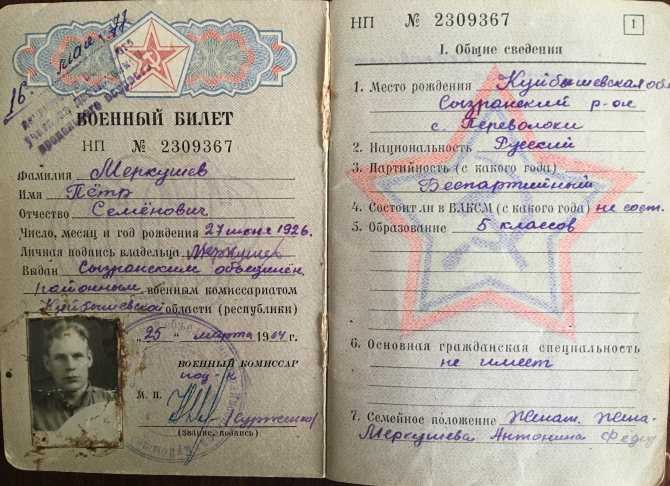 16. мая. 77
ВОЕННЫЙ БИЛЕТ
НП № 2309367
Фамилия Меркушев
Имя Пётр
Отчество Семёнович
Число, месяц и год рождения 27 июня 1926.
Личная подпись владельца Меркушев
Выдан Сызранским объединён.
районным военным комиссариатом
Куйбышевской области (республики)
„25" марта 1964 г.
ВОЕННЫЙ КОМИССАР
М. П.
/Сурженко/
(Звание, подпись)
НП № 2309367
1
I. Общие сведения
1. Место рождения Куйбышевская обл
Сызранский р-он
с. Переволоки
2. Национальность Русский
3. Партийность (с какого года)
Беспартийный
4. Состоит ли в ВЛКСМ (с какого года) не сост.
5. Образование 5 классов
6. Основная гражданская специальность
не имеет
7. Семейное положение Женат. Жена-
Меркушева Антонина Федор